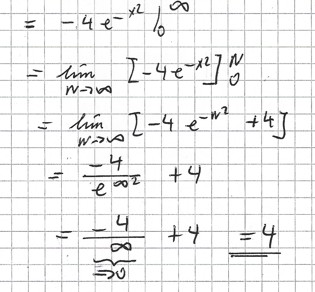 = -4e^{-x2} |_0^∞
= lim_{N→∞} [-4e^{-x2}]_0^N
= lim_{N→∞} [-4 e^{-N^2} +4]
= -4/e^{∞^2} +4
= -4/∞ +4 =4
⇒0